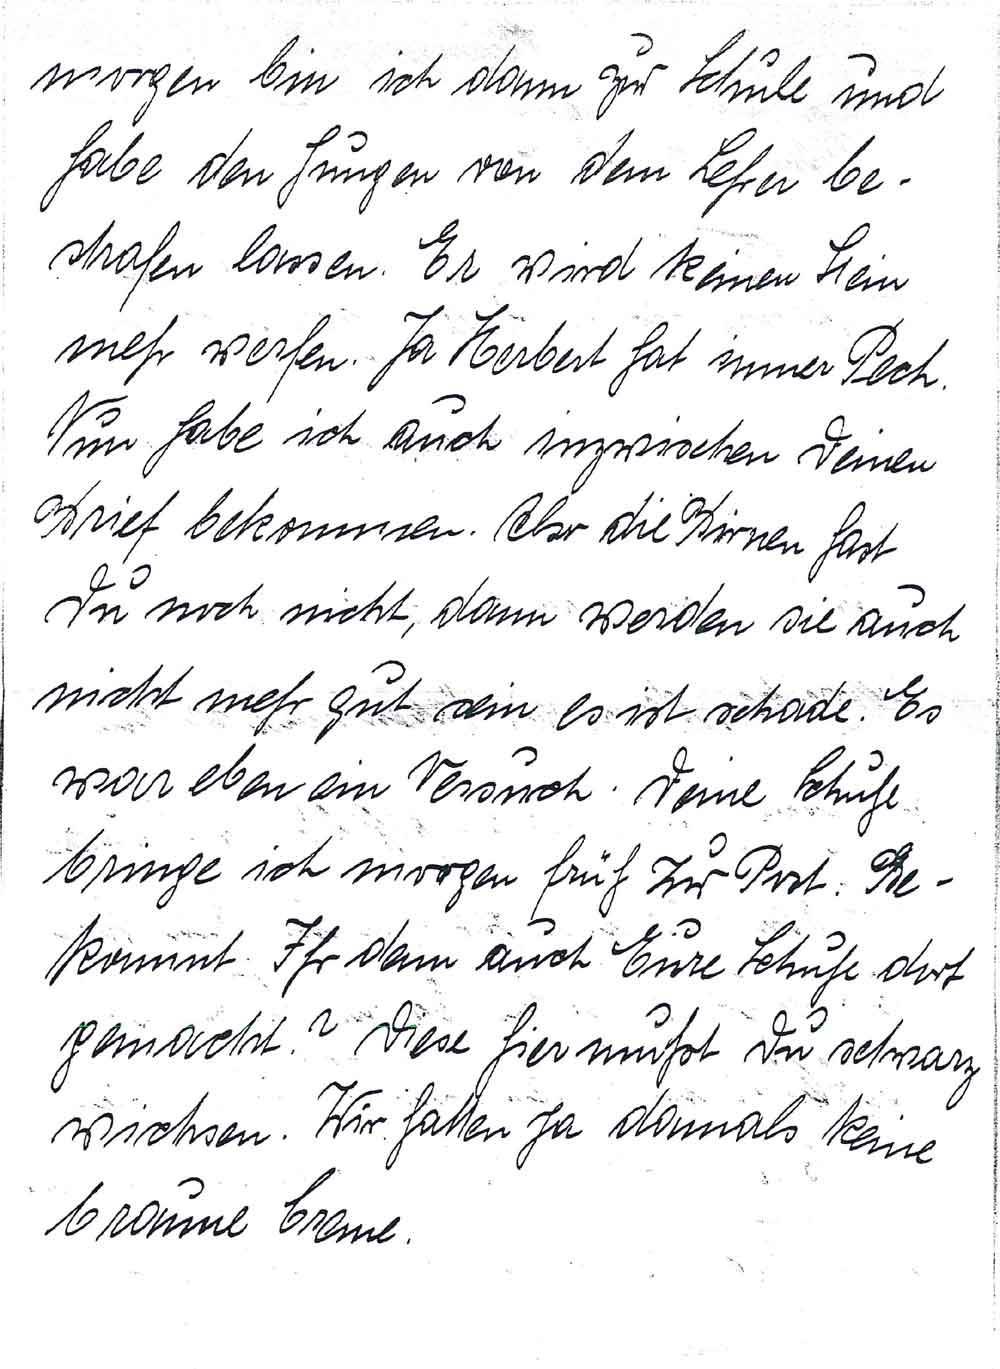 morgen bin ich dann zur Schule und
habe den Jungen von dem Lehrer be-
strafen lassen. Er wird keinen Stein
mehr werfen. Ja Herbert hat immer Pech.
Nun habe ich auch inzwischen Deinen
Brief bekommen. Aber die Birnen hast
Du noch nicht, dann werden sie auch
nicht mehr gut sein es ist schade. Es
war eben ein Versuch. Deine Schuhe
bringe ich morgen früh zur Post. Be-
kommt Ihr denn auch Eure Schuhe dort
gemacht? Diese hier mußt Du schwarz
wichsen. Wir hatten ja damals keine
braune Creme.